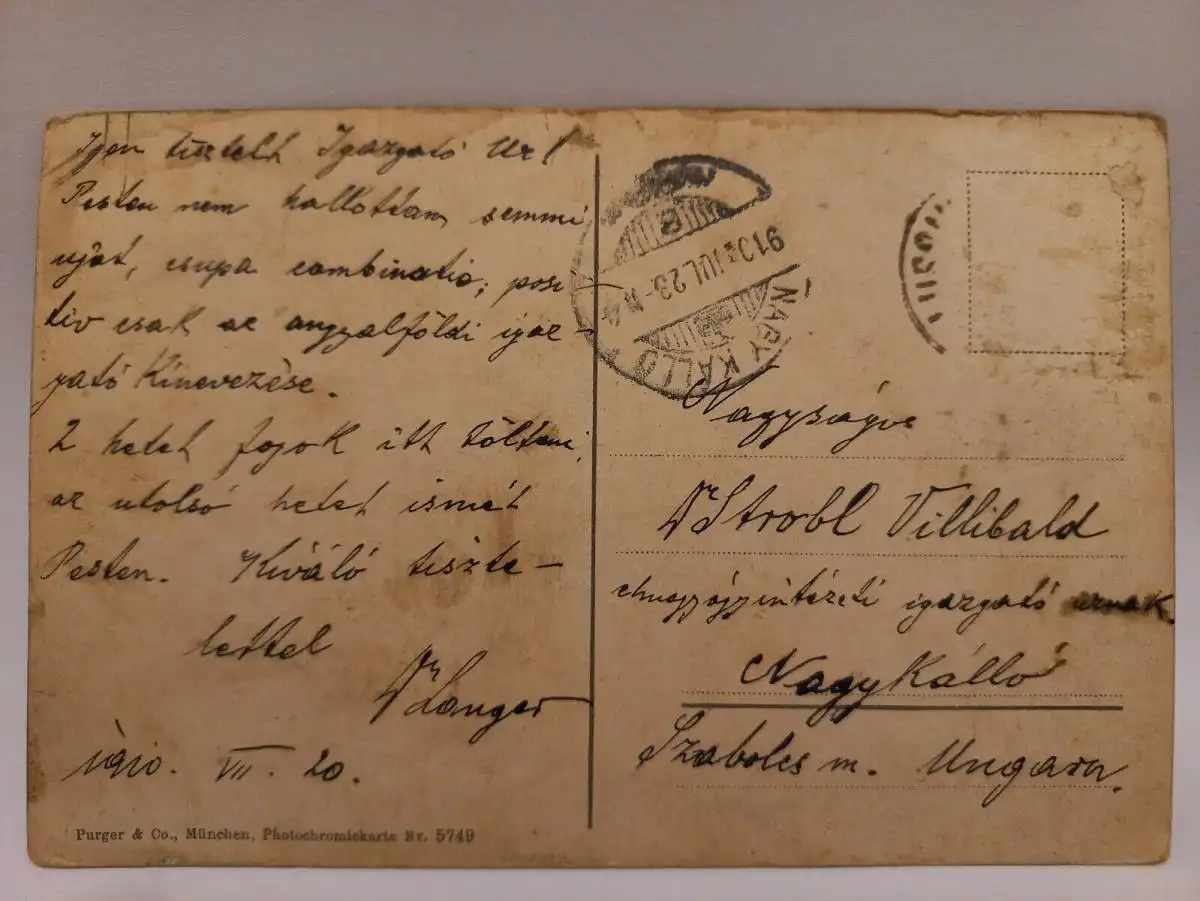 Igen tisztelt Igazgató Úr!
Pesten nem hallottam semmi
ujat, csupa combinatio; posi-
tiv csak az angyalföldi igaz-
gató Kinevezése.
2 hetet fogok itt tölteni,
az utolsó hetet ismét
Pesten. Kiváló tiszte-
lettel
Dr Langer
1910. VII. 20.
Purger & Co., München, Photochromiekarte Nr. 5749
910 JUL. 23
NAGY KÁLLÓ
Nagyságos
Dr Strobl Villibald
elmegyógyintézeti igazgató urnak
Nagy Kálló
Szabolcs m. Ungarn.